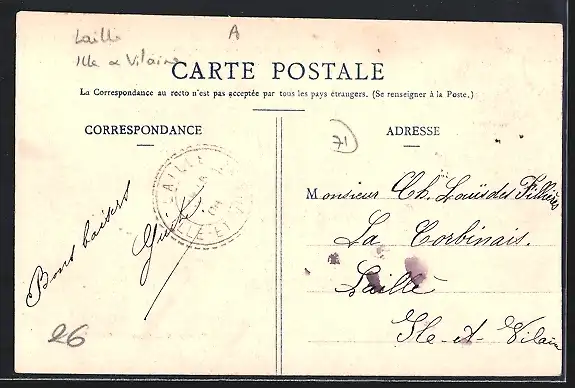 Laillé
A
Ille & Vilaine
CARTE POSTALE
La Correspondance au recto n'est pas acceptée par tous les pays étrangers. (Se renseigner à la Poste.)
CORRESPONDANCE
ADRESSE
71
LAILLÉ
ILLE-ET-
Bons baisers
Monsieur Ch. Louïsdes Filhières
La Corbinais.
Laillé
Ile-et-Vilaine
26